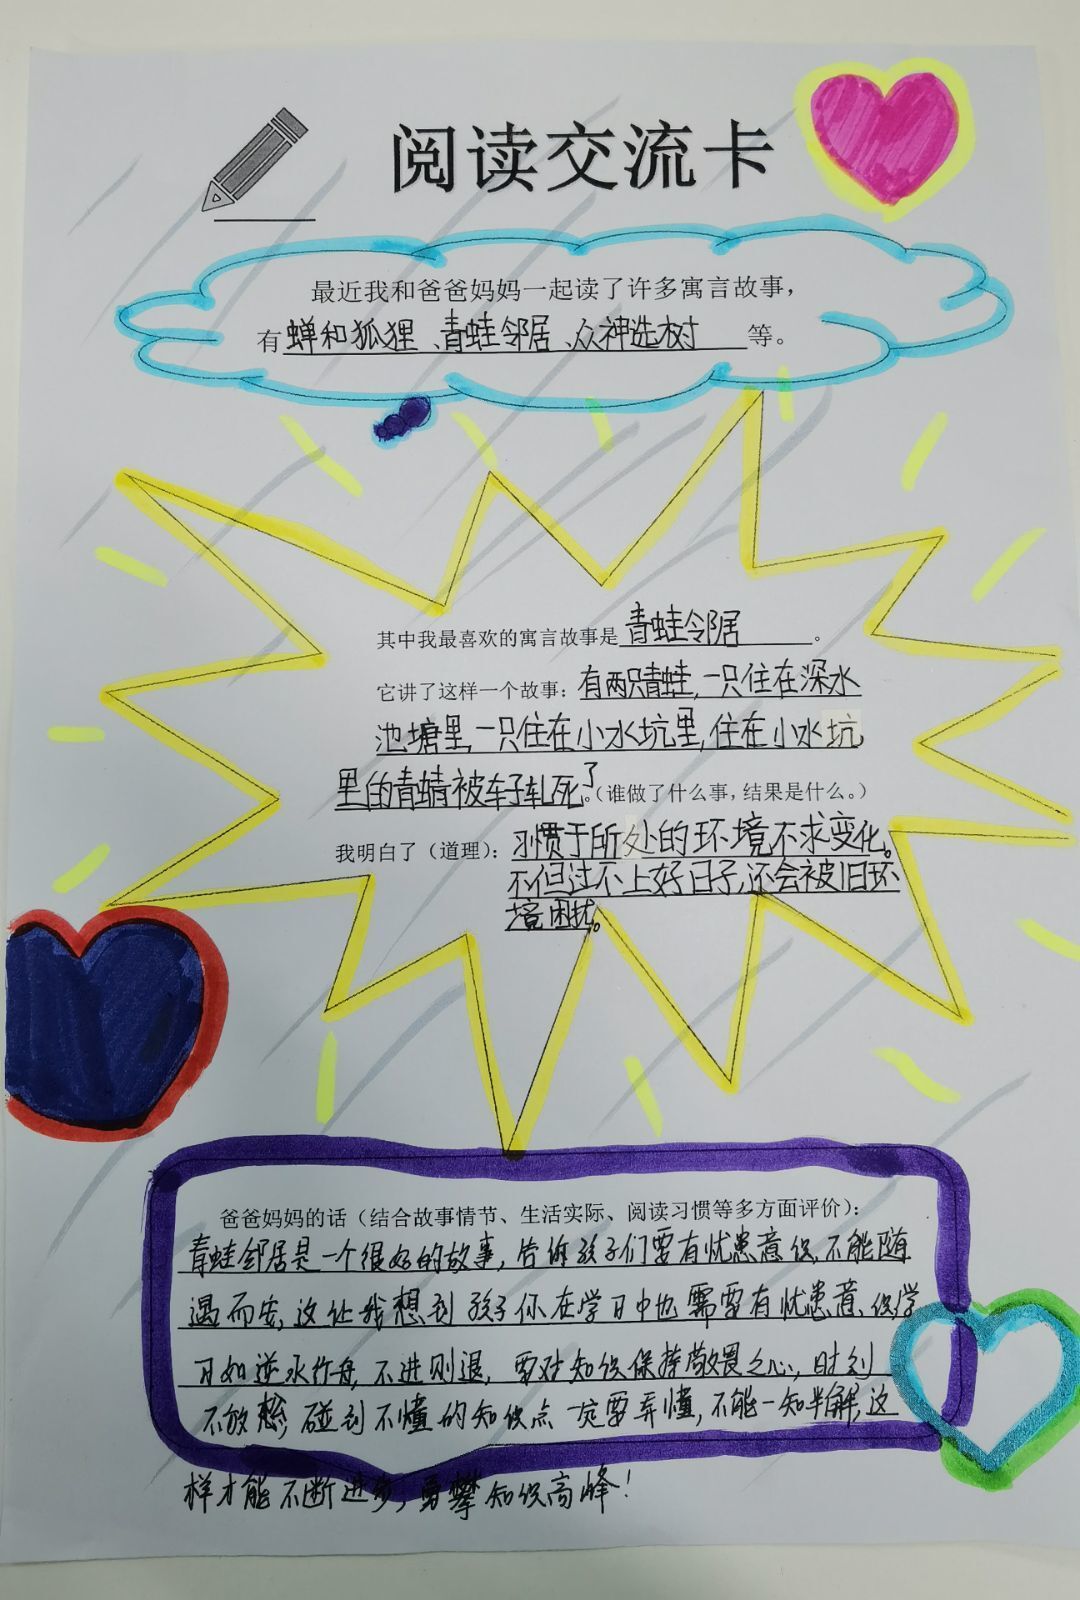 阅读交流卡
最近我和爸爸妈妈一起读了许多寓言故事，
有蝉和狐狸、青蛙邻居、众神选树等。
其中我最喜欢的寓言故事是青蛙邻居。
它讲了这样一个故事：有两只青蛙，一只住在深水
池塘里，一只住在小水坑里，住在小水坑
里的青蜻被车子轧死了。（谁做了什么事，结果是什么。）
我明白了（道理）：习惯于所处的环境不求变化。
不但过不上好日子，还会被旧环
境困扰。
爸爸妈妈的话（结合故事情节、生活实际、阅读习惯等多方面评价）：
青蛙邻居是一个很好的故事，告诉孩子们要有忧患意识，不能随
遇而安，这让我想到孩子你在学习中也需要有忧患意识，学
习如逆水行舟，不进则退，要对知识保持敬畏之心，时刻
不放松，碰到不懂的知识点一定要弄懂，不能一知半解，这
样才能不断进步，勇攀知识高峰！